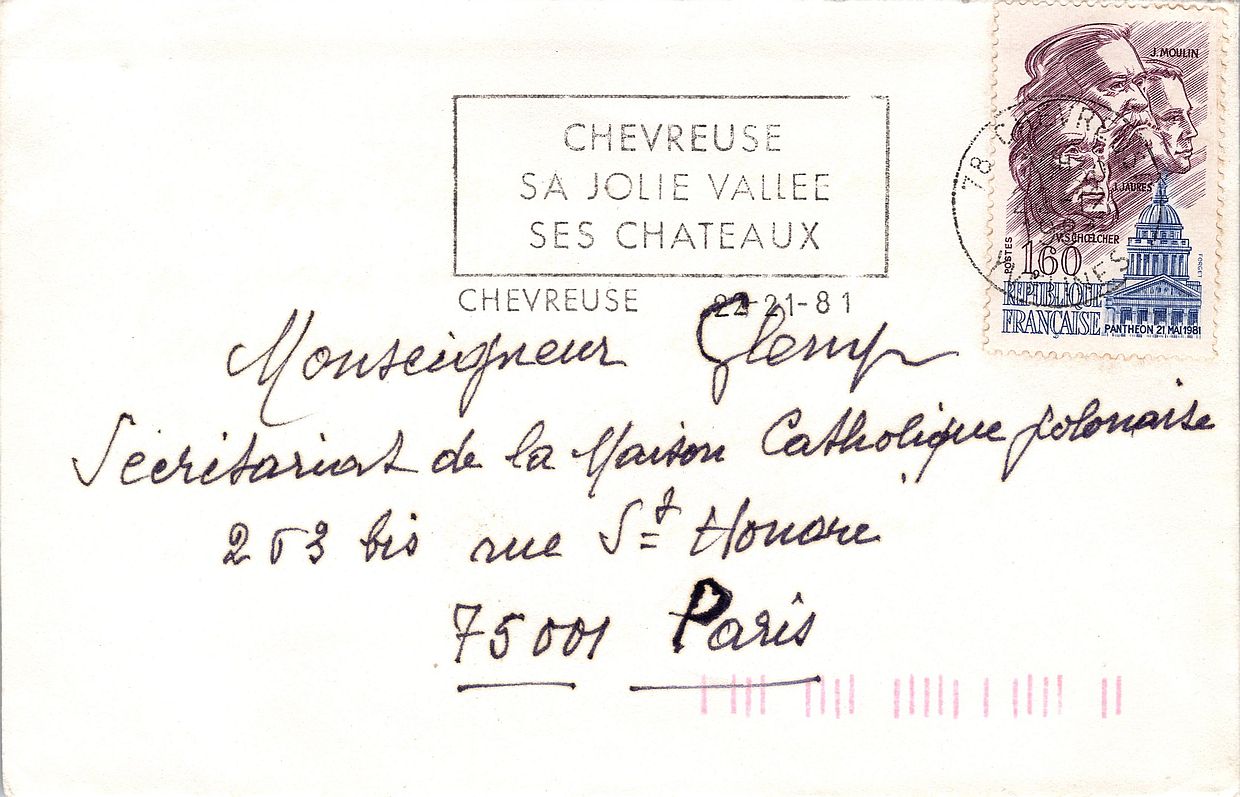 J. MOULIN
J. JAURES
V. SCHOELCHER
POSTES
1,60
FORGET
REPUBLIQUE
FRANÇAISE
PANTHEON 21 MAI 1981
78 CHEVREUSE
YVELINES
CHEVREUSE
SA JOLIE VALLEE
SES CHATEAUX
CHEVREUSE
-81
Monseigneur Glemp
Secrétariat de la Maison Catholique polonaise
263 bis rue St Honoré
75001 Paris